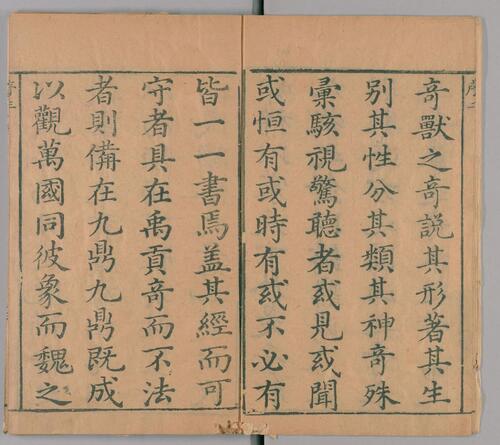 奇獸之奇說其形著其生
別其性分其類其神奇殊
彙駭視驚聽者或見或聞
或恒有或時有或不必有
皆一一書焉盖其經而可
守者具在禹貢奇而不法
者則備在九鼎九鼎旣成
以觀萬國同彼象而魏之